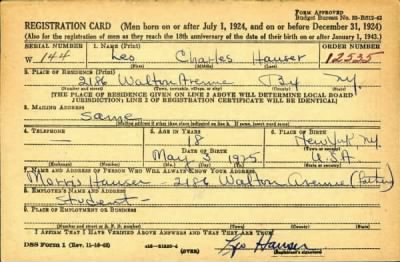 FORM APPROVED
REGISTRATION CARD (Men born on or after July 1, 1924, and on or before December 31, 1924)
(Also for the registration of men as they reach the 18th anniversary of the date of their birth on or after January 1, 1943.)
SERIAL NUMBER 1. NAME (Print) ORDER NUMBER
W 144 Leo Charles Hauser 12535
(First) (Middle) (Last)
2. PLACE OF RESIDENCE (Print)
2186 Walton Avenue Bx N.Y.
(Number and street) (Town, township, village, or city) (County) (State)
[THE PLACE OF RESIDENCE GIVEN ON LINE 2 ABOVE WILL DETERMINE LOCAL BOARD
JURISDICTION; LINE 2 OF REGISTRATION CERTIFICATE WILL BE IDENTICAL]
3. MAILING ADDRESS
Same
[Mailing address if other than place indicated on line 2. If same, insert word same]
4. TELEPHONE 5. AGE IN YEARS 6. PLACE OF BIRTH
— 18 New York, N.Y.
DATE OF BIRTH (Town or county)
May 3 1925 U.S.A.
(Exchange) (Number) (Mo.) (Day) (Yr.) (State or country)
7. NAME AND ADDRESS OF PERSON WHO WILL ALWAYS KNOW YOUR ADDRESS
Morris Hauser - 2186 Walton Avenue (Father)
8. EMPLOYER'S NAME AND ADDRESS
Student -
9. PLACE OF EMPLOYMENT OR BUSINESS
(Number and street or R. F. D. number) (Town) (County) (State)
I AFFIRM THAT I HAVE VERIFIED ABOVE ANSWERS AND THAT THEY ARE TRUE.
DSS Form 1 (Rev. 11-16-42) (OVER) Leo Hauser
(Registrant's signature)